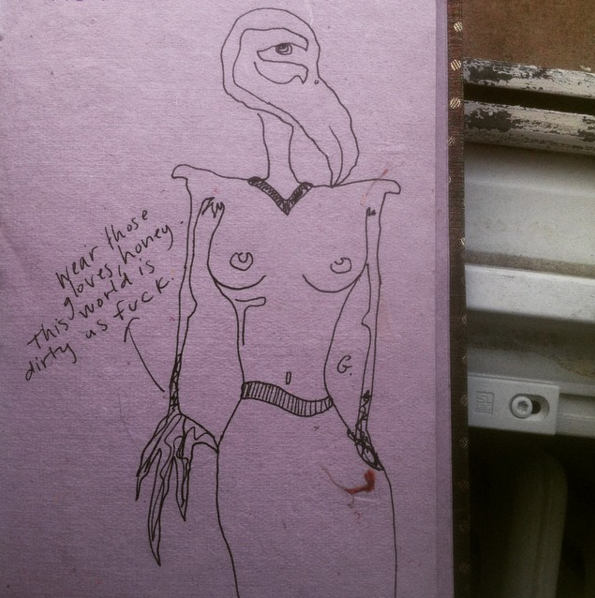 Wear those
gloves, honey.
This world is
dirty as fuck.
G.